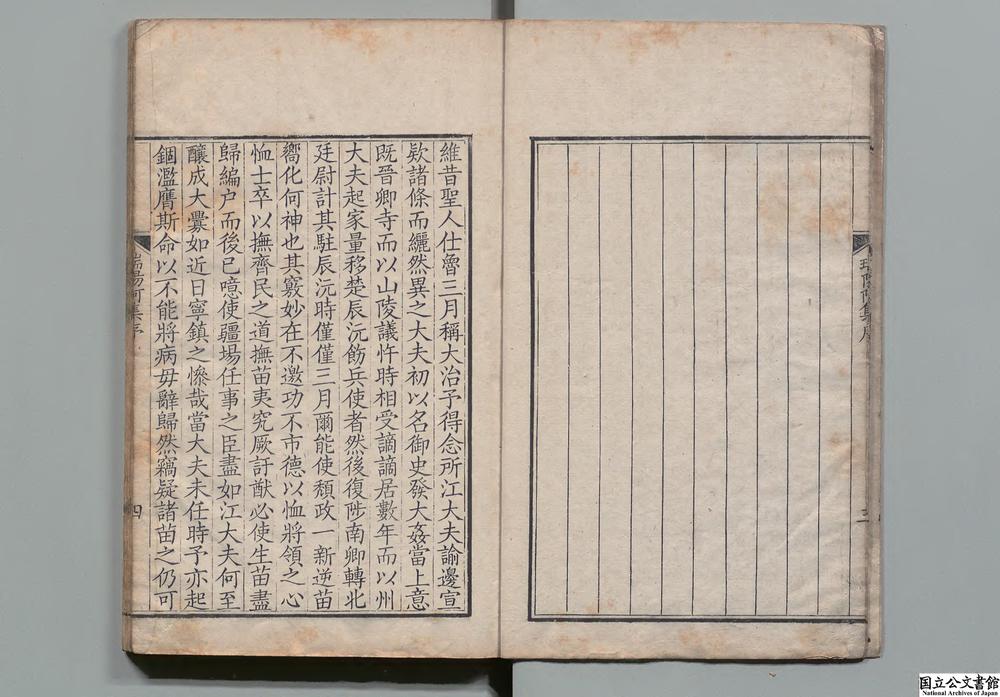 瑞陽阿集序
三
維昔聖人仕魯三月稱大治予得念所江大夫諭邊宣
欵諸條而纚然異之大夫初以名御史發大姦當上意
既晉卿寺而以山陵議忤時相受謫謫居數年而以州
大夫起家量移楚辰沅飭兵使者然後復陟南卿轉北
廷尉計其駐辰沅時僅僅三月爾能使頹政一新逆苗
嚮化何神也其竅妙在不邀功不市德以恤將領之心
恤士卒以撫齊民之道撫苗夷究厥訏猷必使生苗盡
歸編户而後已噫使疆場任事之臣盡如江大夫何至
釀成大釁如近日寧鎮之慘哉當大夫未任時予亦起
錮濫膺斯命以不能將病毋辭歸然竊疑諸苗之仍可
瑞陽阿集序
四
国立公文書館
National Archives of Japan